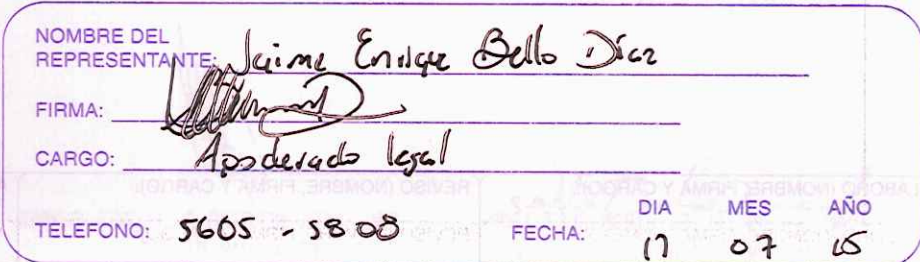 NOMBRE DEL
REPRESENTANTE: Jaime Enrique Bello Díaz
FIRMA:
CARGO: Apoderado legal
DIA MES AÑO
TELEFONO: 5605 - 5808 FECHA: 17 07 15